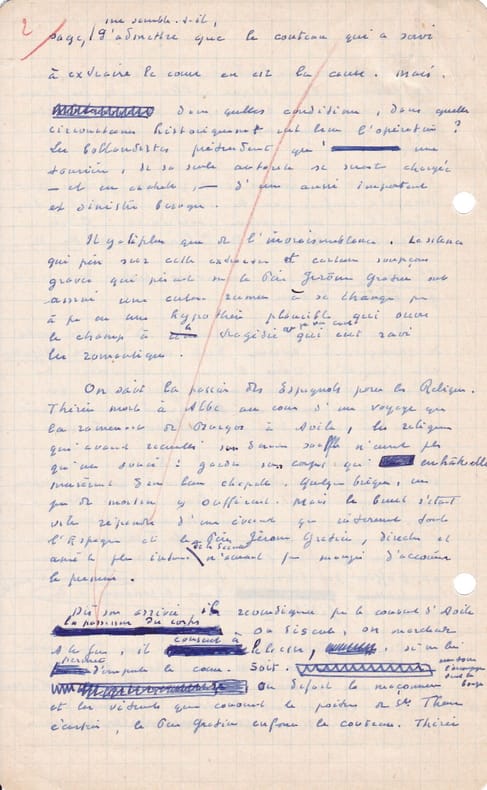 2
me semble-t-il,
page, d'admettre que le couteau qui a servi
à extraire le cœur en est la cause. Mais.
dans quelles conditions, dans quelles
circonstances historiquement eut lieu l'opération ?
Les bollandistes prétendent qu' une
tourière, de sa seule autorité se serait chargée
— et en cachette, — d'un aussi important
et sinistre besogne.
Il y a là plus que de l'invraisemblance. Le silence
qui pèse sur cette extraction et certains soupçons
graves qui pèsent sur le Père Jérôme Gratien ont
une à se change
à peu une hypothèse plausible qui ouvre
le champ à la tragédie qui eut ravi
les romantiques.
On sait la passion des Espagnols pour les Reliques.
Thérèse morte à Albe au cours d'un voyage qui
la ramenait de Burgos à Avila, les religieuses
qui avaient recueilli son dernier souffle n'eurent plus
qu'un souci : garder son corps qui
dans leur chapelle. Quelques briques, un
peu de mortier y suffirent. Mais le bruit s'était
vite répandu d'un événement qui intéressait toute
l'Espagne et le Père Jérôme Gratien, directeur et
ami le plus intime de la Sainte n'aurait pas manqué d'accourir
le premier.
Dès son arrivée il revendique pour le couvent d'Avila
la possession du corps
On discute, on marchande
A la fin, il consent à le laisser, si on lui
permet
d'emporter le cœur. Soit.
On défait la maçonnerie
et les vêtements qui couvrent la poitrine de Ste Thérèse
écartés, le Père Gratien enfonce le couteau. Thérèse